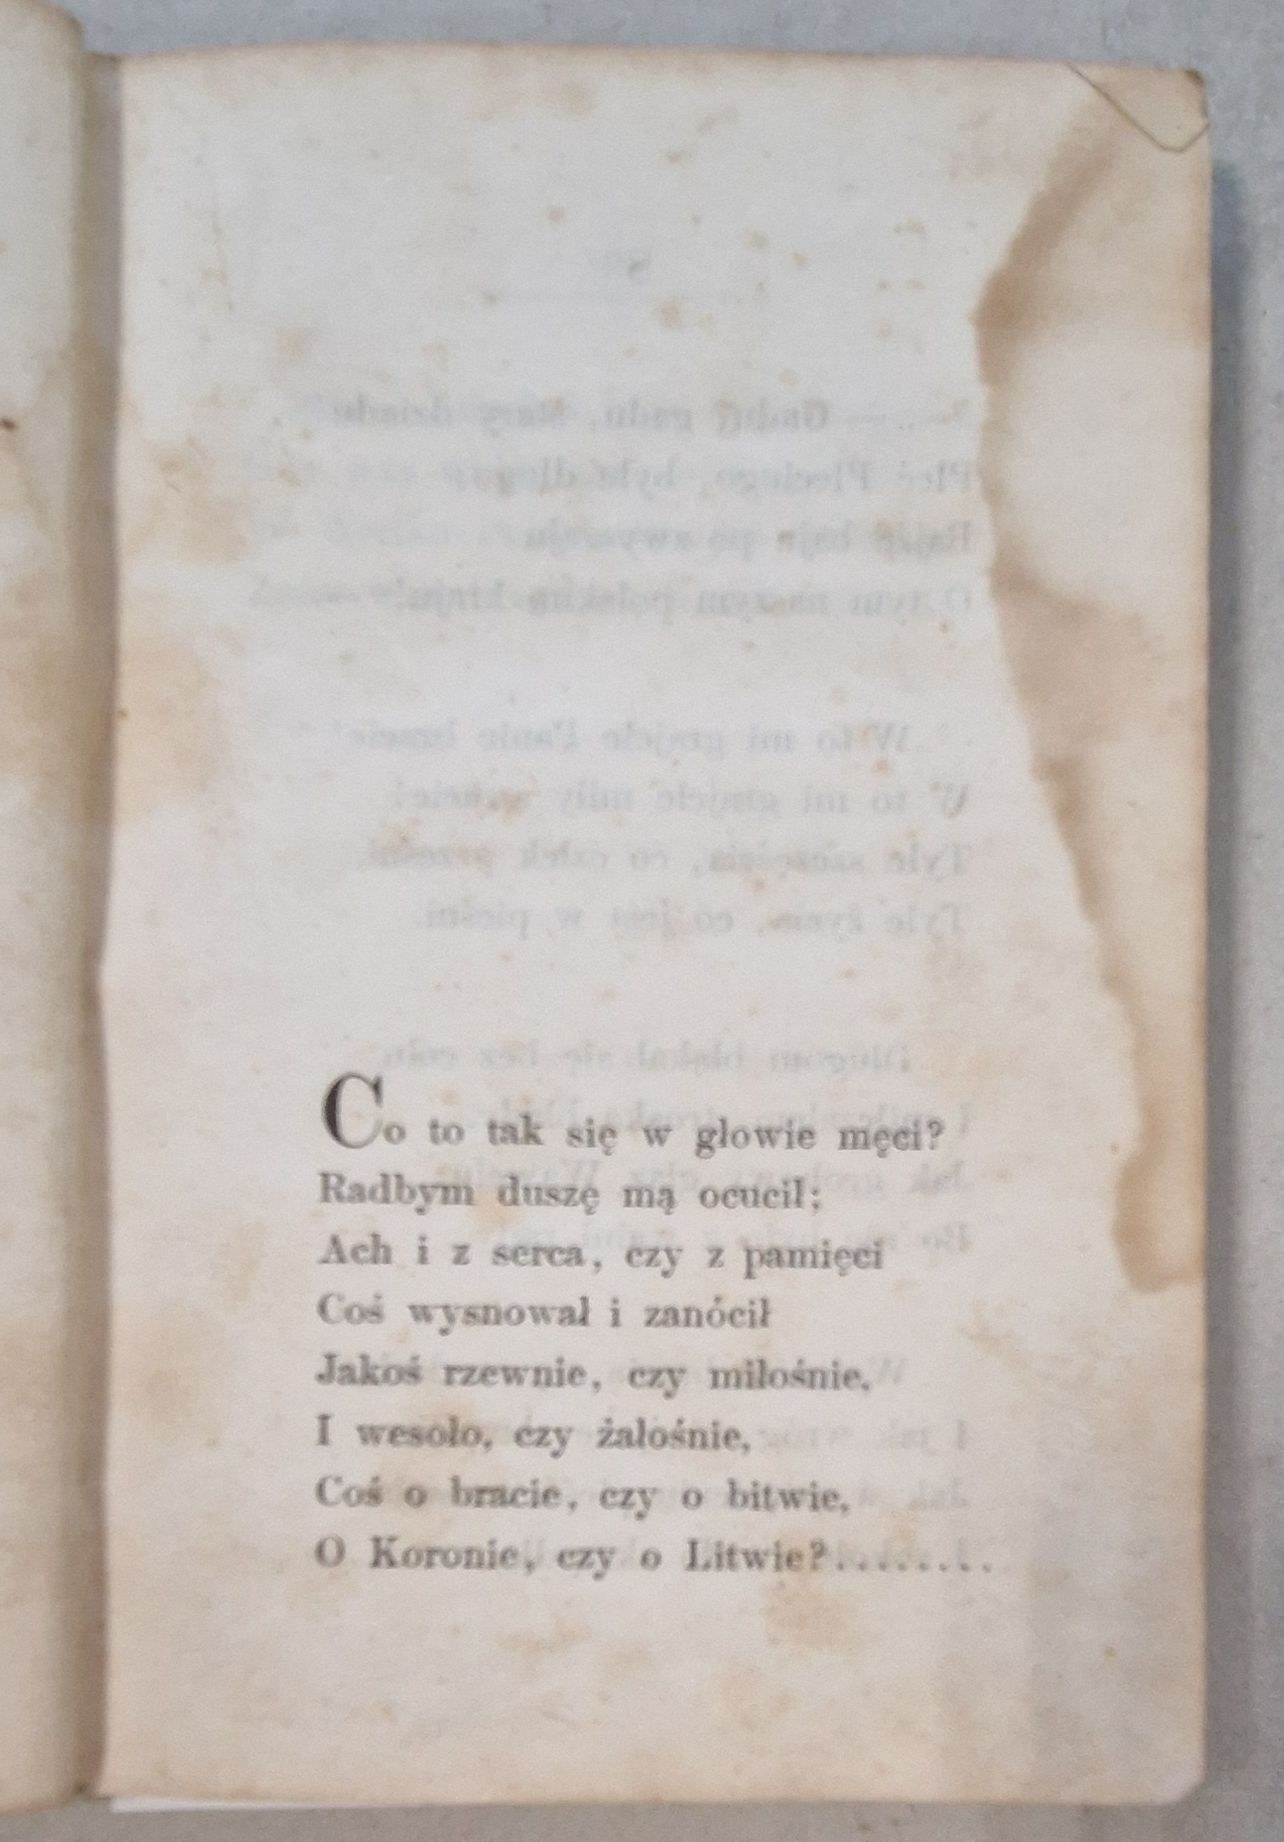 Co to tak się w głowie męci?
Radbym duszę mą ocucił;
Ach i z serca, czy z pamięci
Coś wysnował i zanócił
Jakoś rzewnie, czy miłośnie,
I wesoło, czy żałośnie,
Coś o bracie, czy o bitwie,
O Koronie, czy o Litwie?........